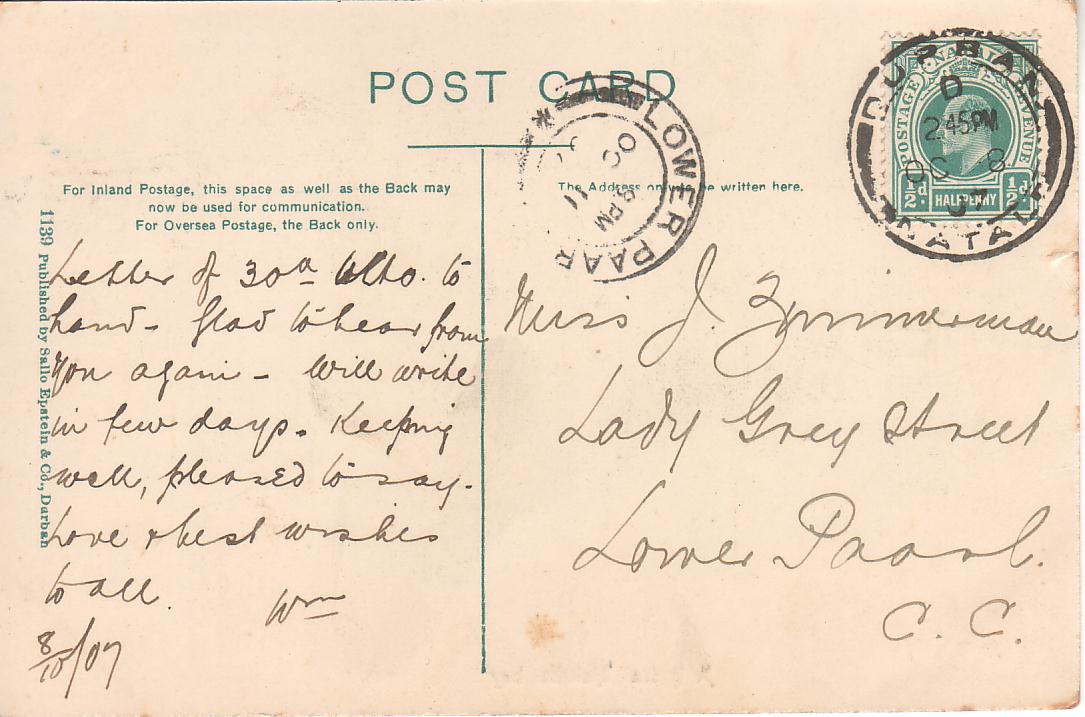 POST CARD
For Inland Postage, this space as well as the Back may
now be used for communication.
For Oversea Postage, the Back only.
The Address only be written here.
1139 Published by Sallo Epstein & Co., Durban
Letter of 30th Ulto. to
hand - Glad to hear from
you again - Will write
in few days. Keeping
well, pleased to say.
Love & best wishes
to all.
Wm
8/10/07
Miss J. Zimmerman
Lady Grey Street
Lower Paarl.
C. C.
LOWER PAAR
OC 11
8 PM
07
DURBAN
D
2.45PM
OC 8
07
NATAL
NATAL
POSTAGE REVENUE
½d HALFPENNY ½d